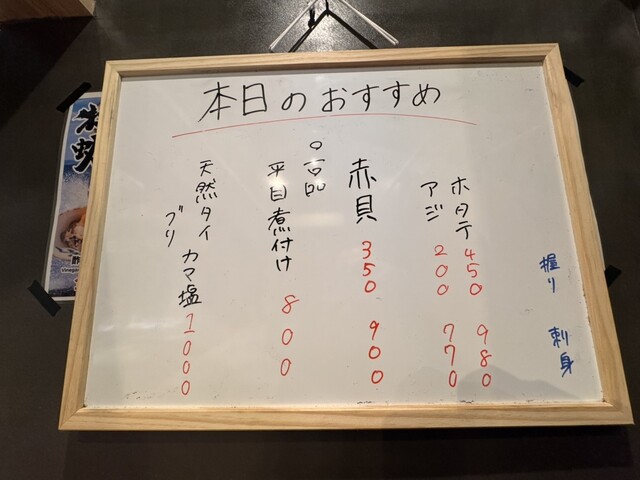 本日のおすすめ
握り 刺身
ホタテ 450 980
アジ 200 770
赤貝 350 900
○一品
平目煮付け 800
天然タイ カマ塩 1000
ブリ